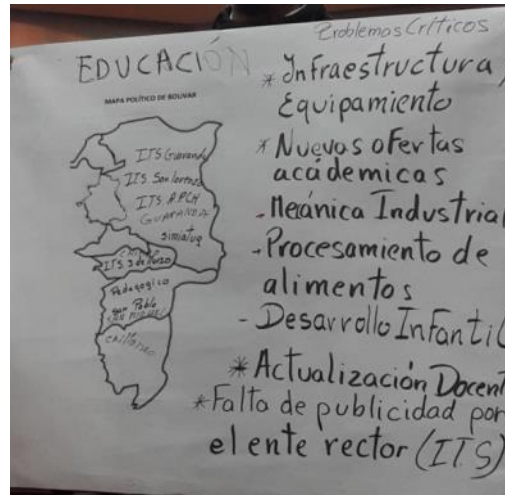 Problemas Críticos
EDUCACIÓN
MAPA POLÍTICO DE BOLIVAR
ITS Guaranda
ITS. San Lorenzo
ITS. APCH
GUARANDA
Simiatug
ITS 3 de Marzo
Pedagogico
Pablo
SAN MIGUEL
CHILLANES
* Infraestructura,
Equipamiento
* Nuevas ofertas
académicas
- Mecánica Industrial
- Procesamiento de
alimentos
- Desarrollo Infantil
* Actualización Docent
* Falta de publicidad por
el ente rector (ITS)